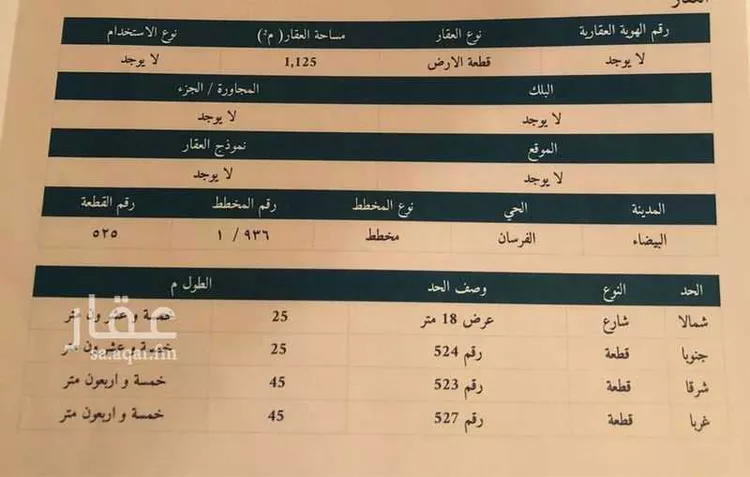 العقار
رقم الهوية العقارية نوع العقار مساحة العقار( م²) نوع الاستخدام
لا يوجد قطعة الارض 1,125 لا يوجد
البلك المجاورة / الجزء
لا يوجد لا يوجد
الموقع نموذج العقار
لا يوجد لا يوجد
المدينة الحي نوع المخطط رقم المخطط رقم القطعة
البيضاء الفرسان مخطط ٩٣٦/ ١ ٥٢٥
الحد النوع وصف الحد الطول م
شمالا شارع عرض 18 متر 25 خمسة و عشرون متر
جنوبا قطعة رقم 524 25 خمسة و عشرون متر
شرقا قطعة رقم 523 45 خمسة و اربعون متر
غربا قطعة رقم 527 45 خمسة و اربعون متر
عقار
sa.aqar.fm